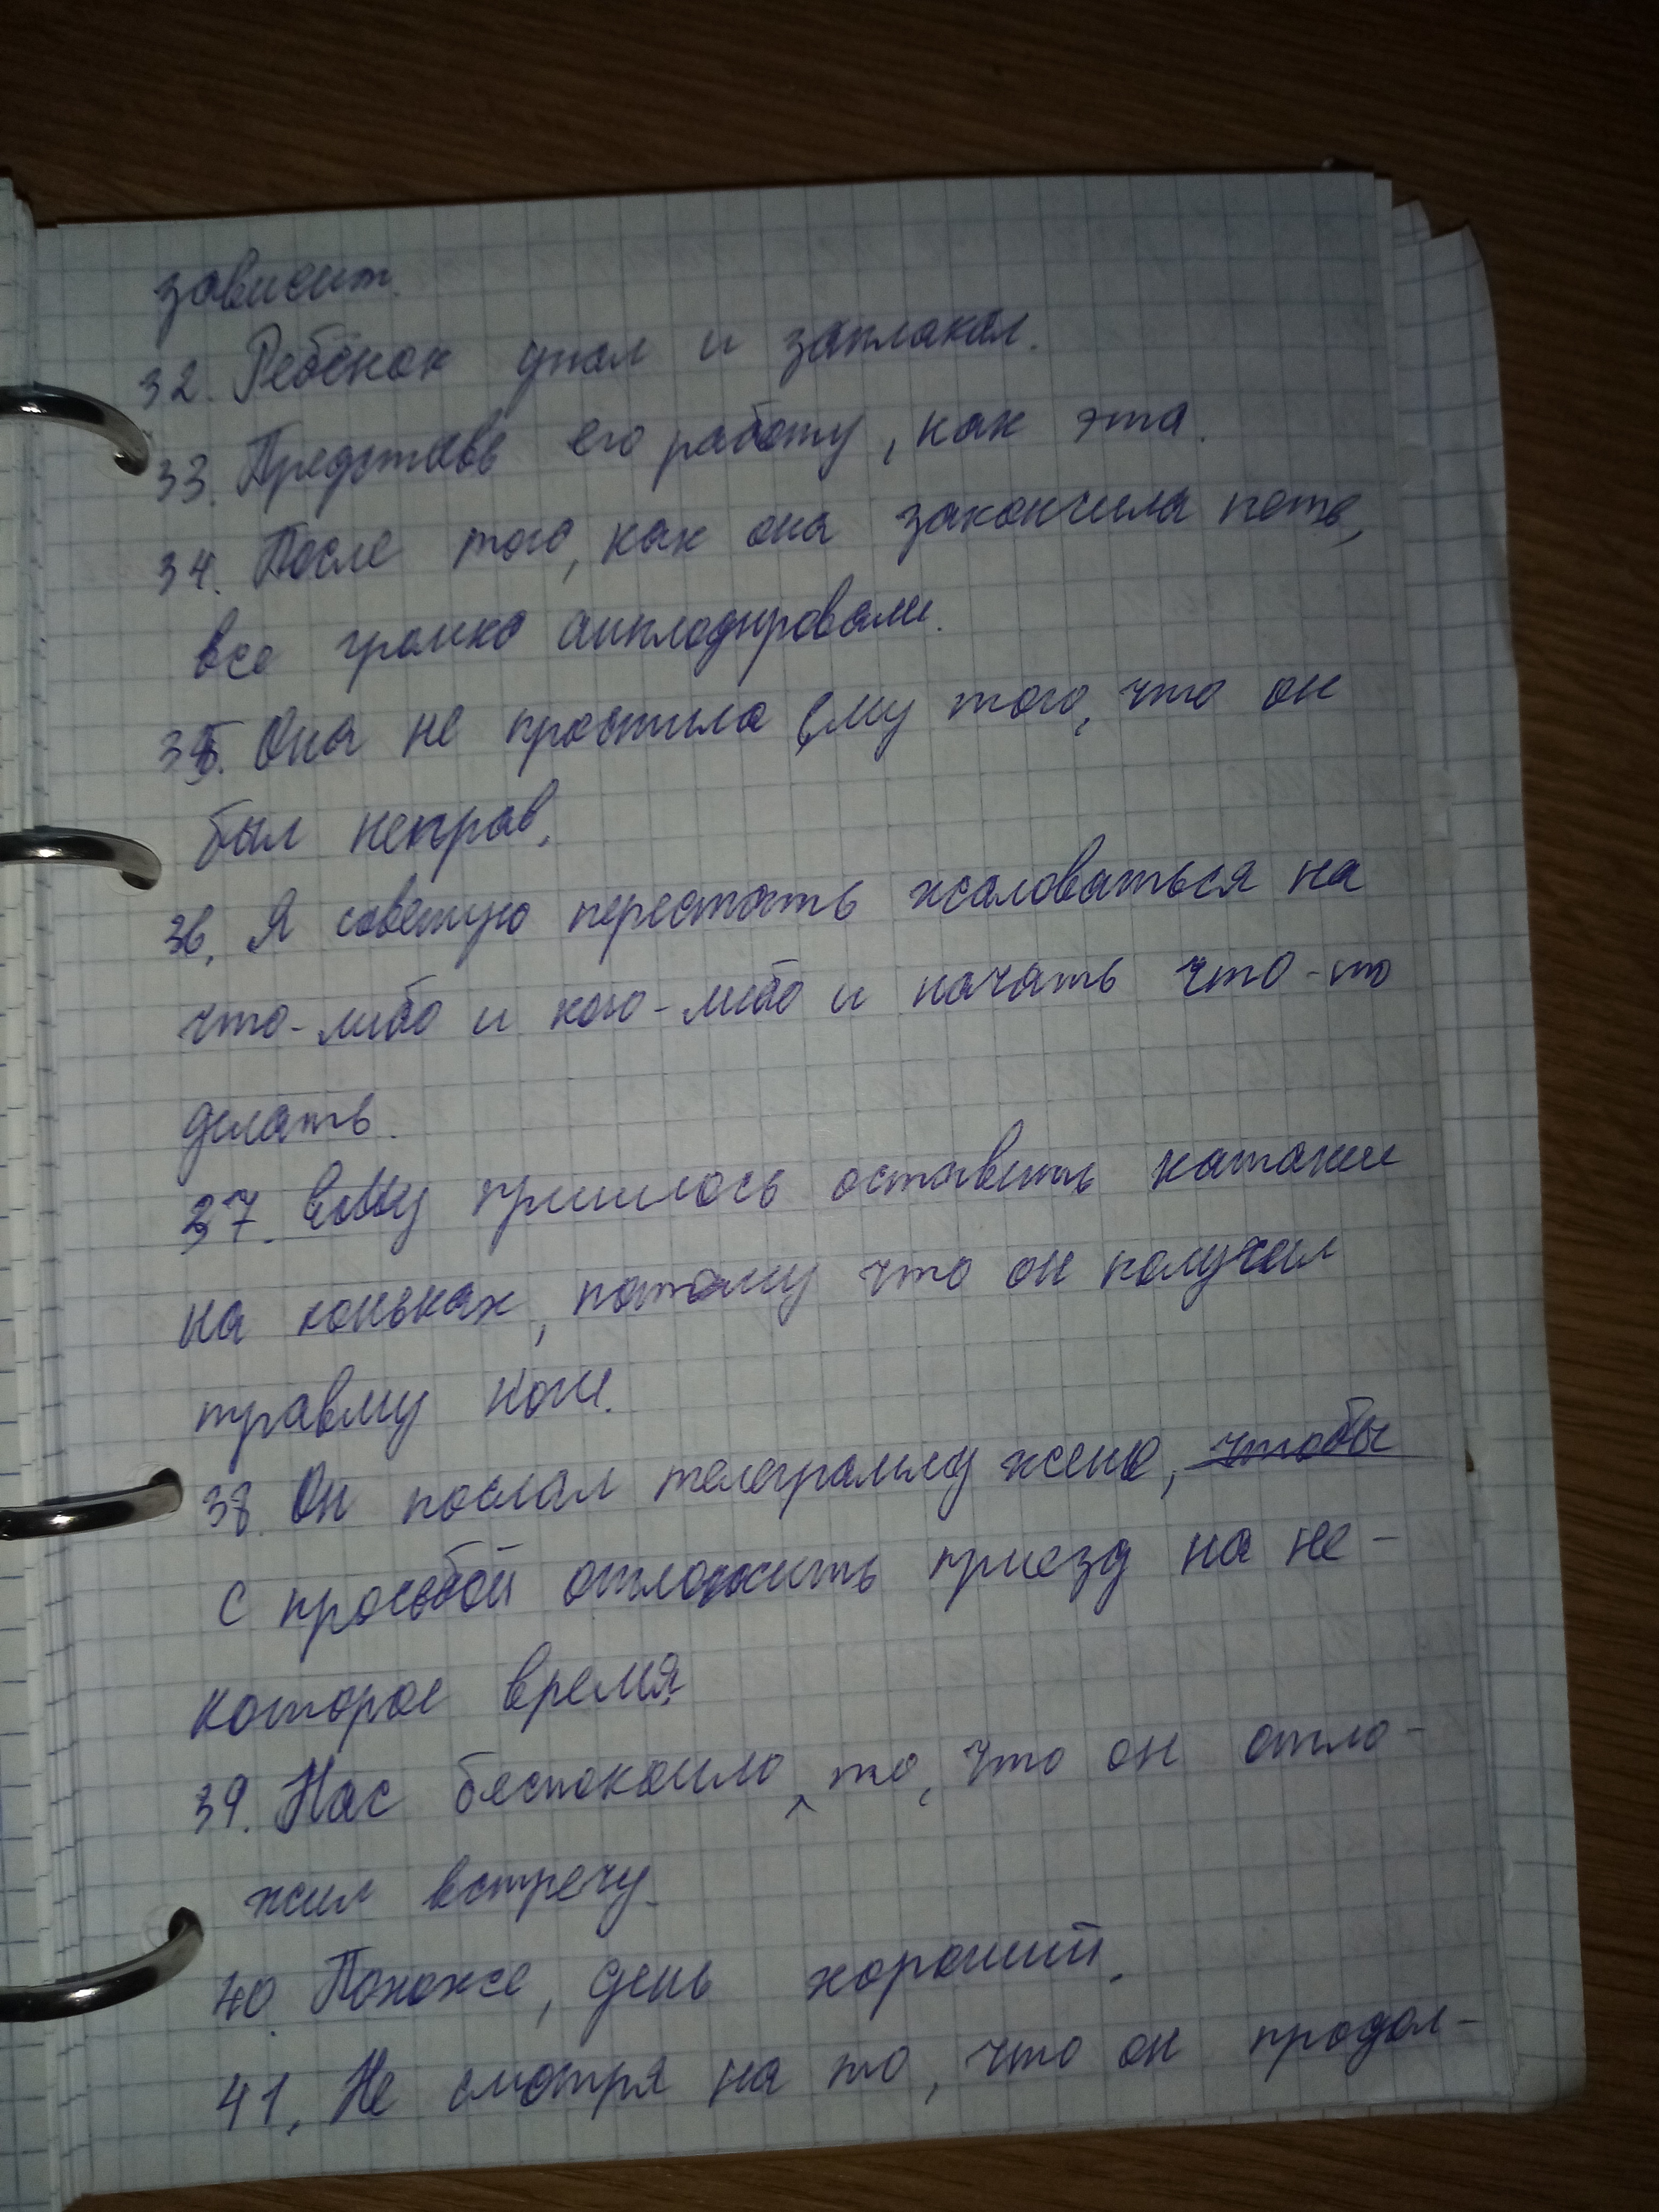 зависит.
32. Ребёнок упал и заплакал.
33. Представь его работу, как эта.
34. После того, как она закончила петь,
все громко апплодировали.
35. Она не простила ему того, что он
был неправ.
36. Я советую перестать жаловаться на
что-либо и кого-либо и начать что-то
делать.
37. Ему пришлось оставить катание
на коньках, потому что он получил
травму ноги.
38. Он послал телеграмму жене, чтобы
с просьбой отложить приезд на не-
которое время.
39. Нас беспокоило, то, что он отло-
жил встречу.
40. Похоже, день хороший.
41. Не смотря на то, что он продол-